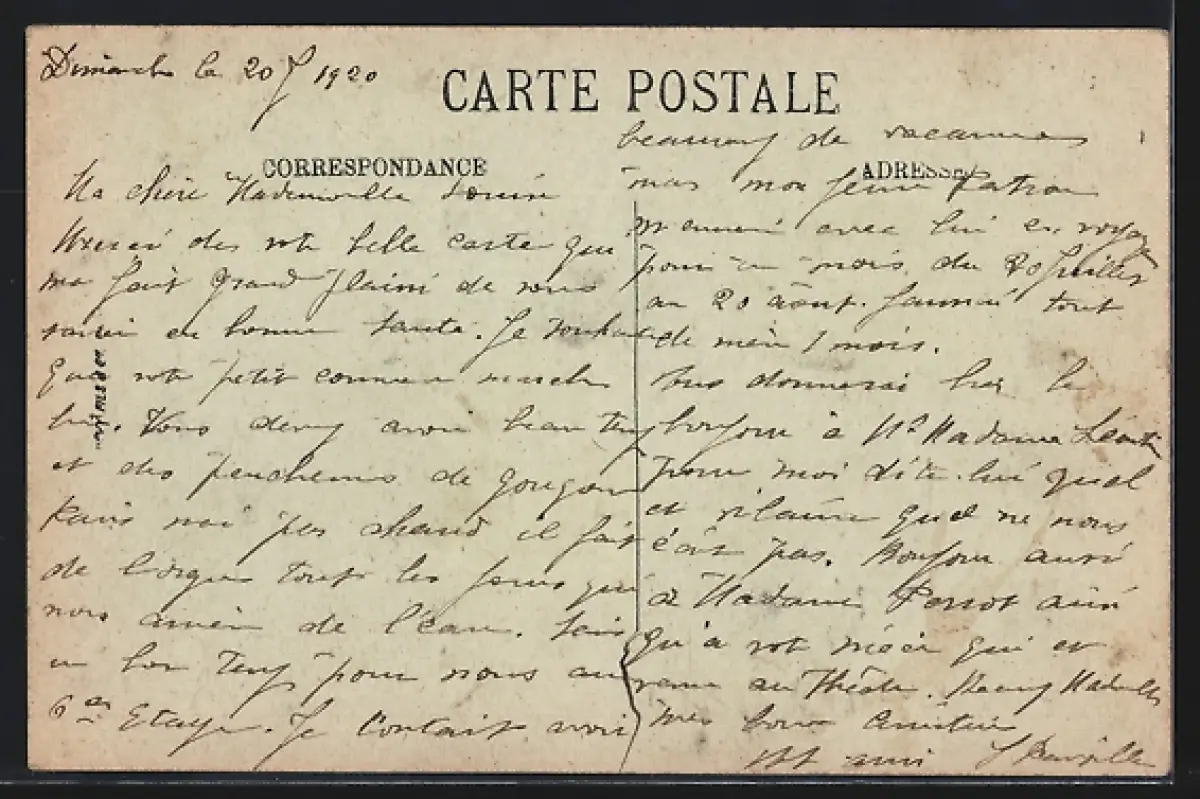 Dimanche le 20 J 1920
CARTE POSTALE
CORRESPONDANCE
Ma chère Mademoiselle Louise
Merci des vote belle carte que
ma fait grand plaisir de vous
savoir en bonne santé. Je souhaite
que vote petit commerce marche
bien. Vous devez avoir beau temp
et des de
Paris nai pas chaud il fait
de tout les jours qui
nous amène de l'eau. Fais
un bon temp pour nous au
6em Etage. Je contait avoir
ADRESSE
beaucoup de vacances
mais mon jeune Patron
m'ammené avec lui en voyage
pour un mois du 20 Juillet
au 20 août. J'aurai tout
de même 1 mois.
Vous donnerai bien le
bonjour à Madame
pour moi dite lui qu'el
et vilaine quel ne nous
écrit pas. Bonjour aussi
à Madame Perrot ainsi
qu'a vote nièce qui et
au Théâtre. Recevez
mes bons
ami